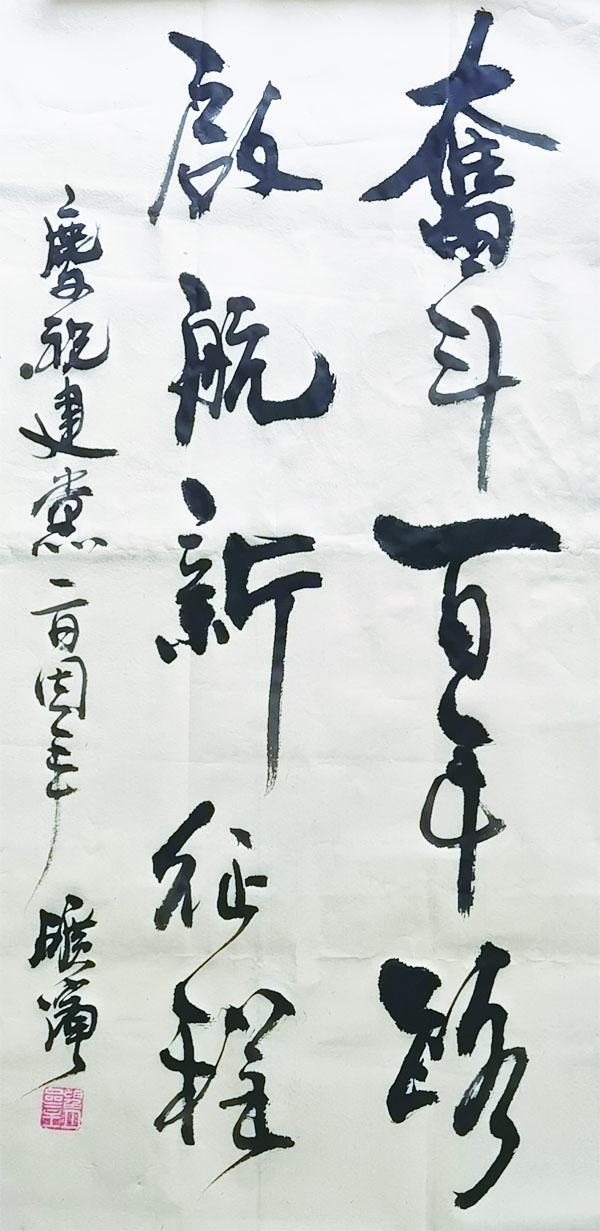 奮斗百年路
啟航新征程
慶祝建黨一百周年